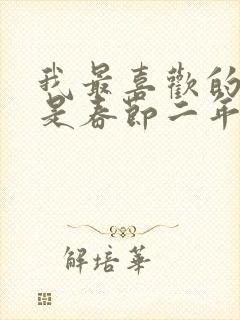 我最喜歡的
是春節二年
解培華